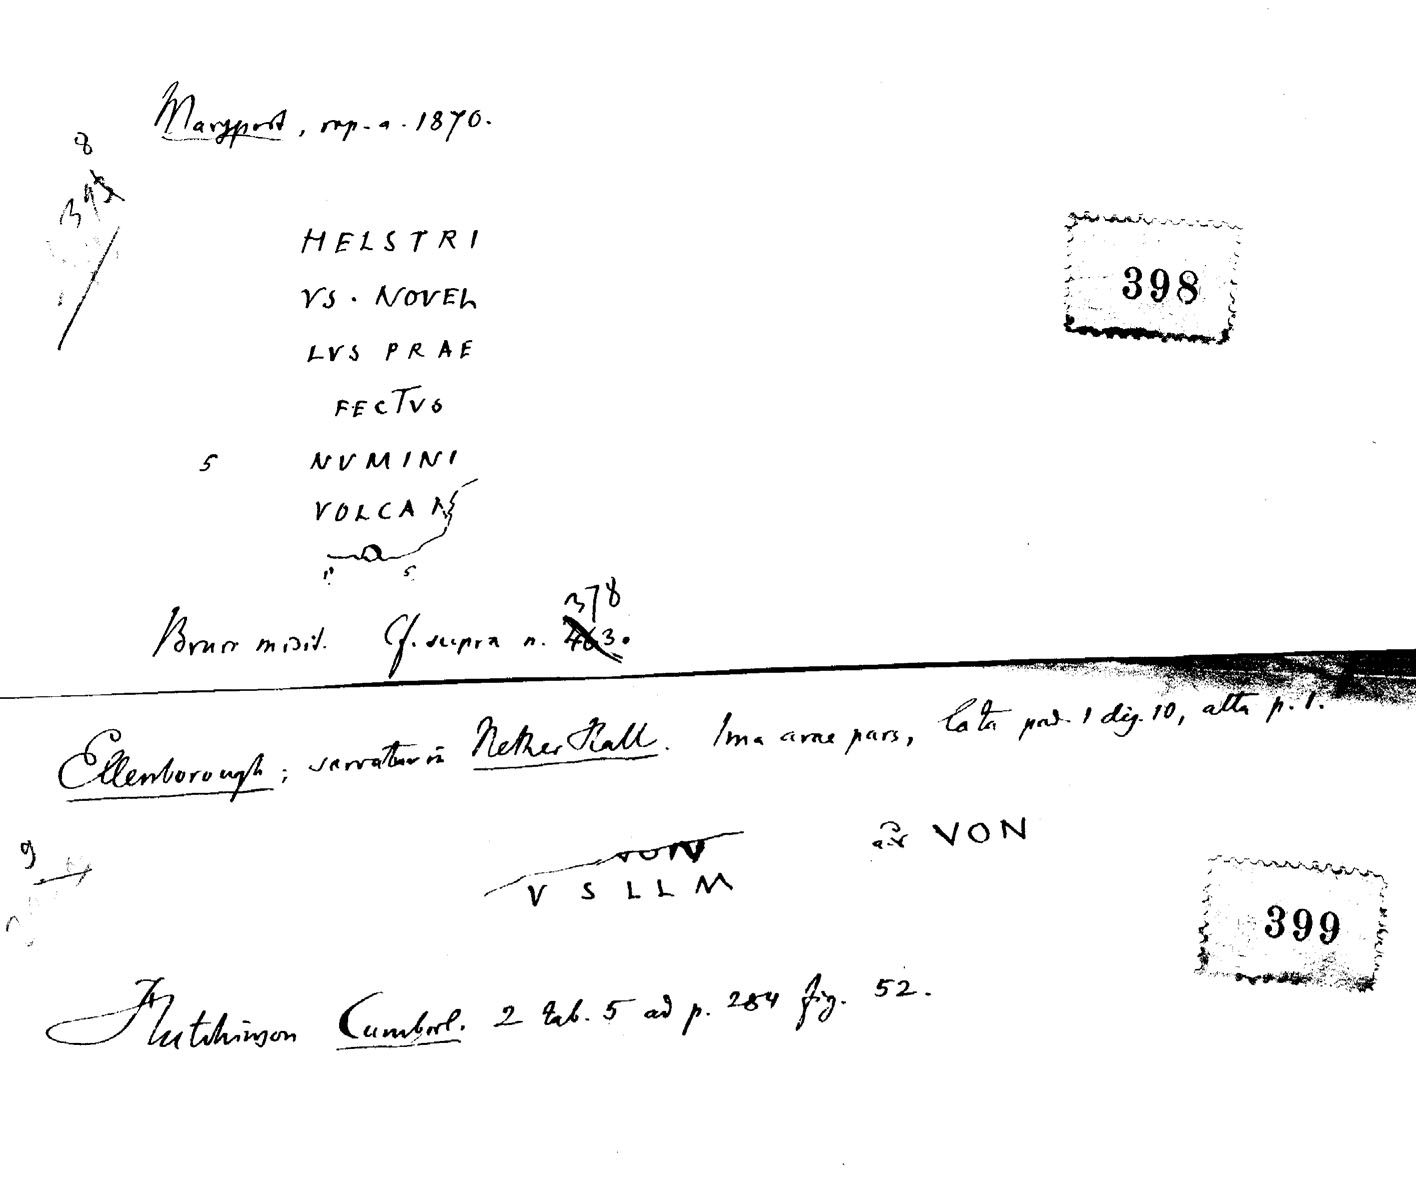 Maryport, rep. a. 1870.
8
398
HELSTRI
VS · NOVEL
LVS PRAE
FECTVS
5 NVMINI
VOLCAN
Bruce misit. Cf. supra n. 378
463.
Ellenborough; servatur in Nether Hall. Ima arae pars, lata ped. 1 dig. 10, alta p. 1.
9
VON
V S L L M
VON
399
Hutchinson Cumberl. 2 tab. 5 ad p. 284 fig. 52.